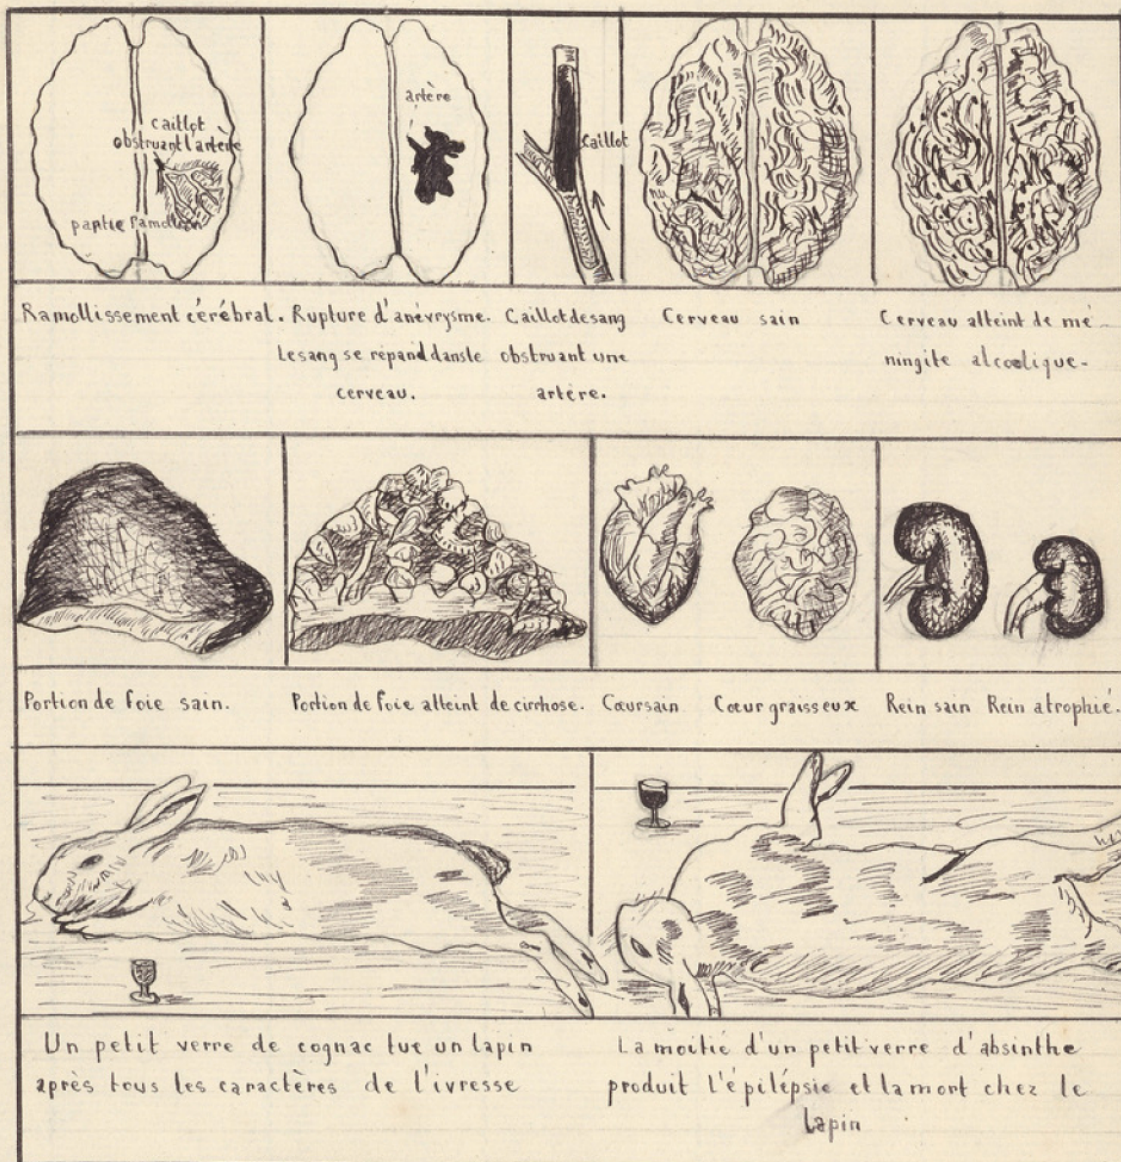 caillot
obstruant l'artère
partie ramollie
artère
Caillot
Ramollissement cérébral.
Rupture d'anévrysme.
Le sang se répand dans le
cerveau.
Caillot de sang
obstruant une
artère.
Cerveau sain
Cerveau atteint de mé-
ningite alcoolique.
Portion de foie sain.
Portion de foie atteint de cirrhose.
Cœur sain
Cœur graisseux
Rein sain
Rein atrophié.
Un petit verre de cognac tue un lapin
après tous les caractères de l'ivresse
La moitié d'un petit verre d'absinthe
produit l'épilépsie et la mort chez le
lapin